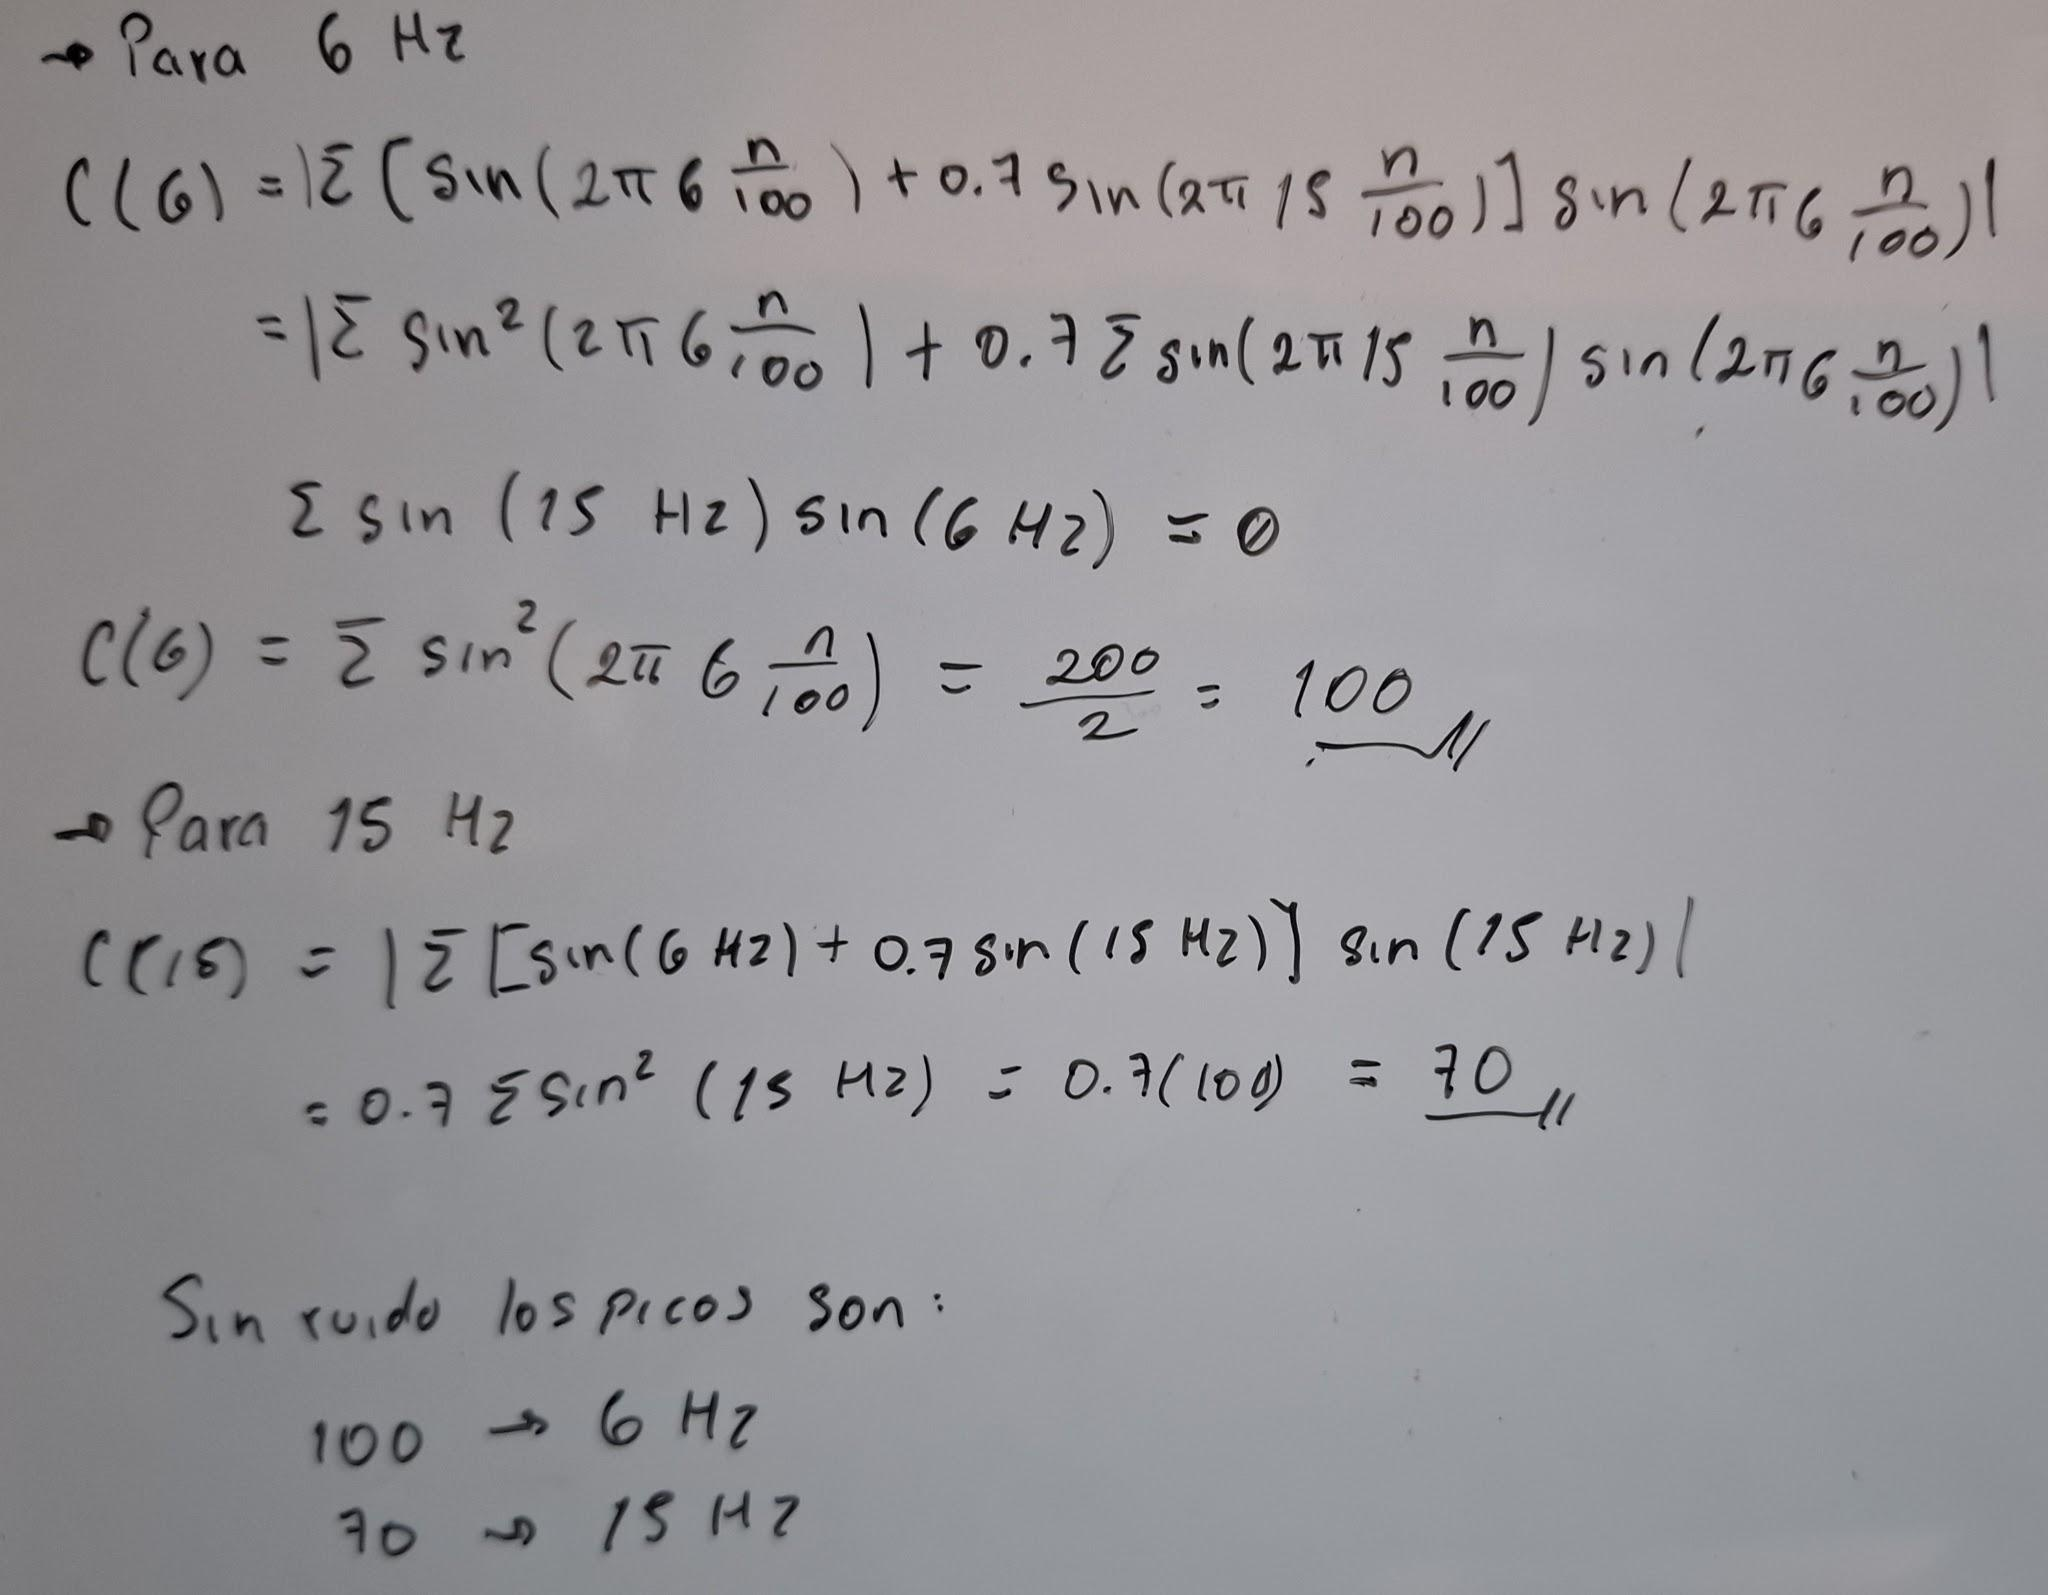 → Para 6 Hz
C(6) = |Σ [sin(2π 6 n/100) + 0.7 sin(2π 15 n/100)] sin(2π 6 n/100)|
= |Σ sin²(2π 6 n/100) + 0.7 Σ sin(2π 15 n/100) sin(2π 6 n/100)|
Σ sin (15 Hz) sin(6 Hz) = 0
C(6) = Σ sin²(2π 6 n/100) = 200/2 = 100
→ Para 15 Hz
C(15) = |Σ [sin(6 Hz) + 0.7 sin(15 Hz)] sin(15 Hz)|
= 0.7 Σ sin² (15 Hz) = 0.7(100) = 70
Sin ruido los picos son:
100 → 6 Hz
70 → 15 Hz